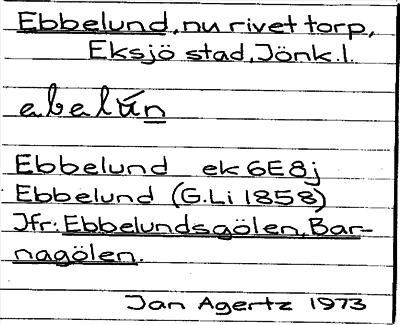 Ebbelund, nu rivet torp,
Eksjö stad, Jönk. l.
abalún
Ebbelund ek 6E8j
Ebbelund (G.Li 1858)
Jfr: Ebbelundsgölen, Bar-
nagölen.
Jan Agertz 1973